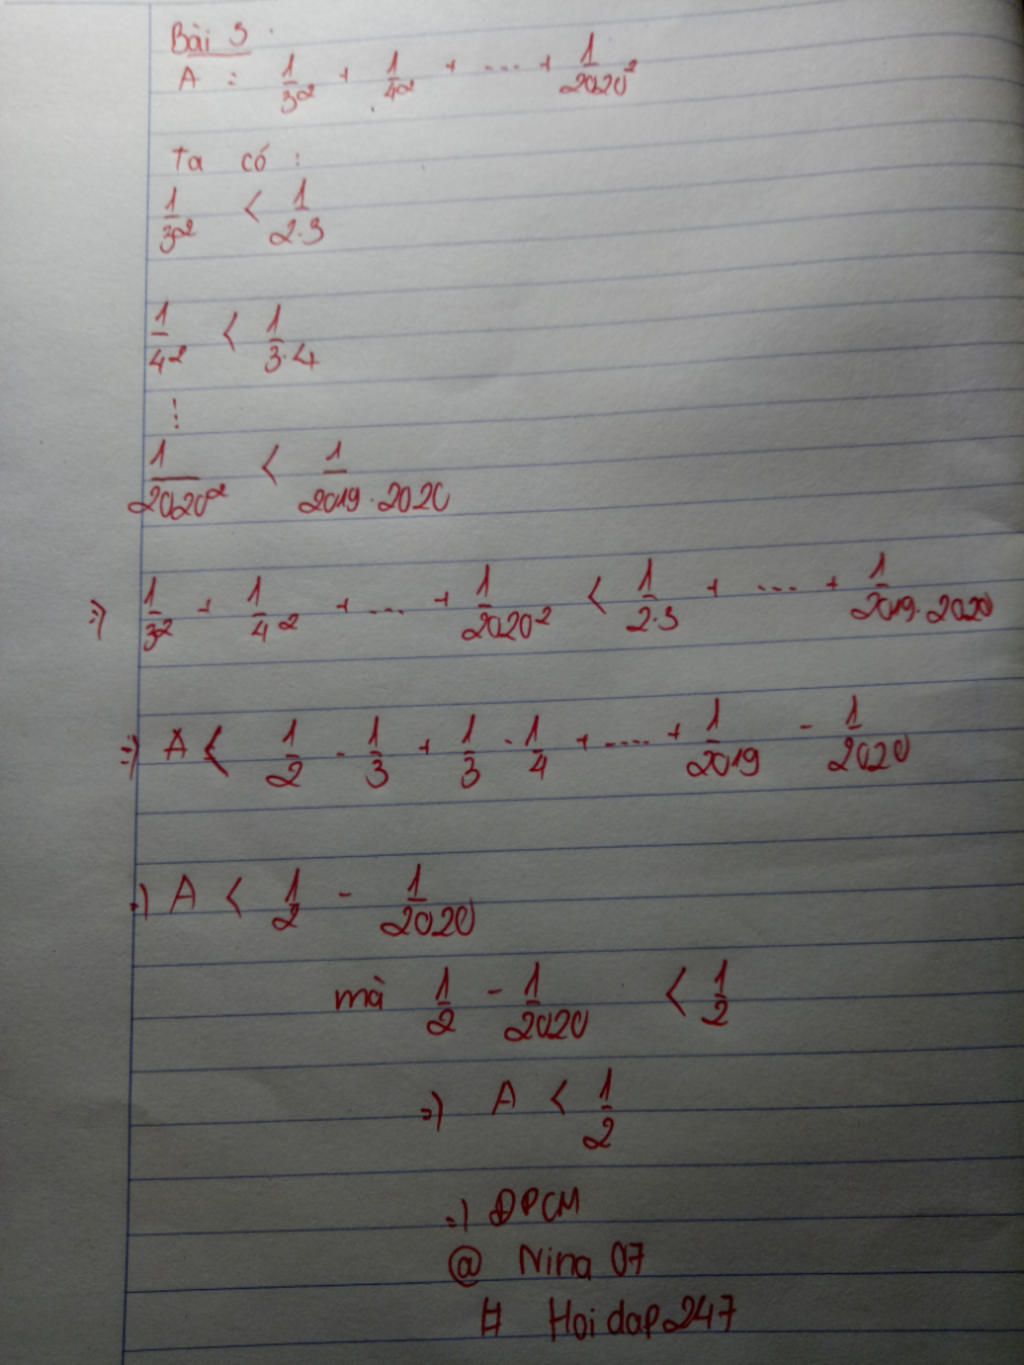 Bài 3
A = 1/3² + 1/4² + .... + 1/2020²
Ta có :
1/3² < 1/2.3
1/4² < 1/3.4
⋮
1/2020² < 1/2019.2020
=) 1/3² + 1/4² + ... + 1/2020² < 1/2.3 + .... + 1/2019.2020
=) A < 1/2 - 1/3 + 1/3 - 1/4 + .... + 1/2019 - 1/2020
=) A < 1/2 - 1/2020
mà 1/2 - 1/2020 < 1/2
=) A < 1/2
=) ĐPCM
@ Nina 07
# Hoidap247